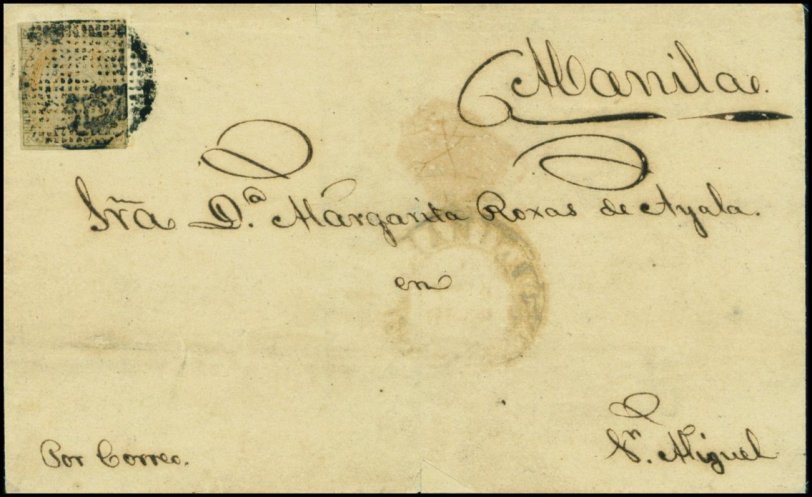 Manila.
Sra. D.a Margarita Roxas de Ayala.
en
Sn. Miguel
Por Correo.